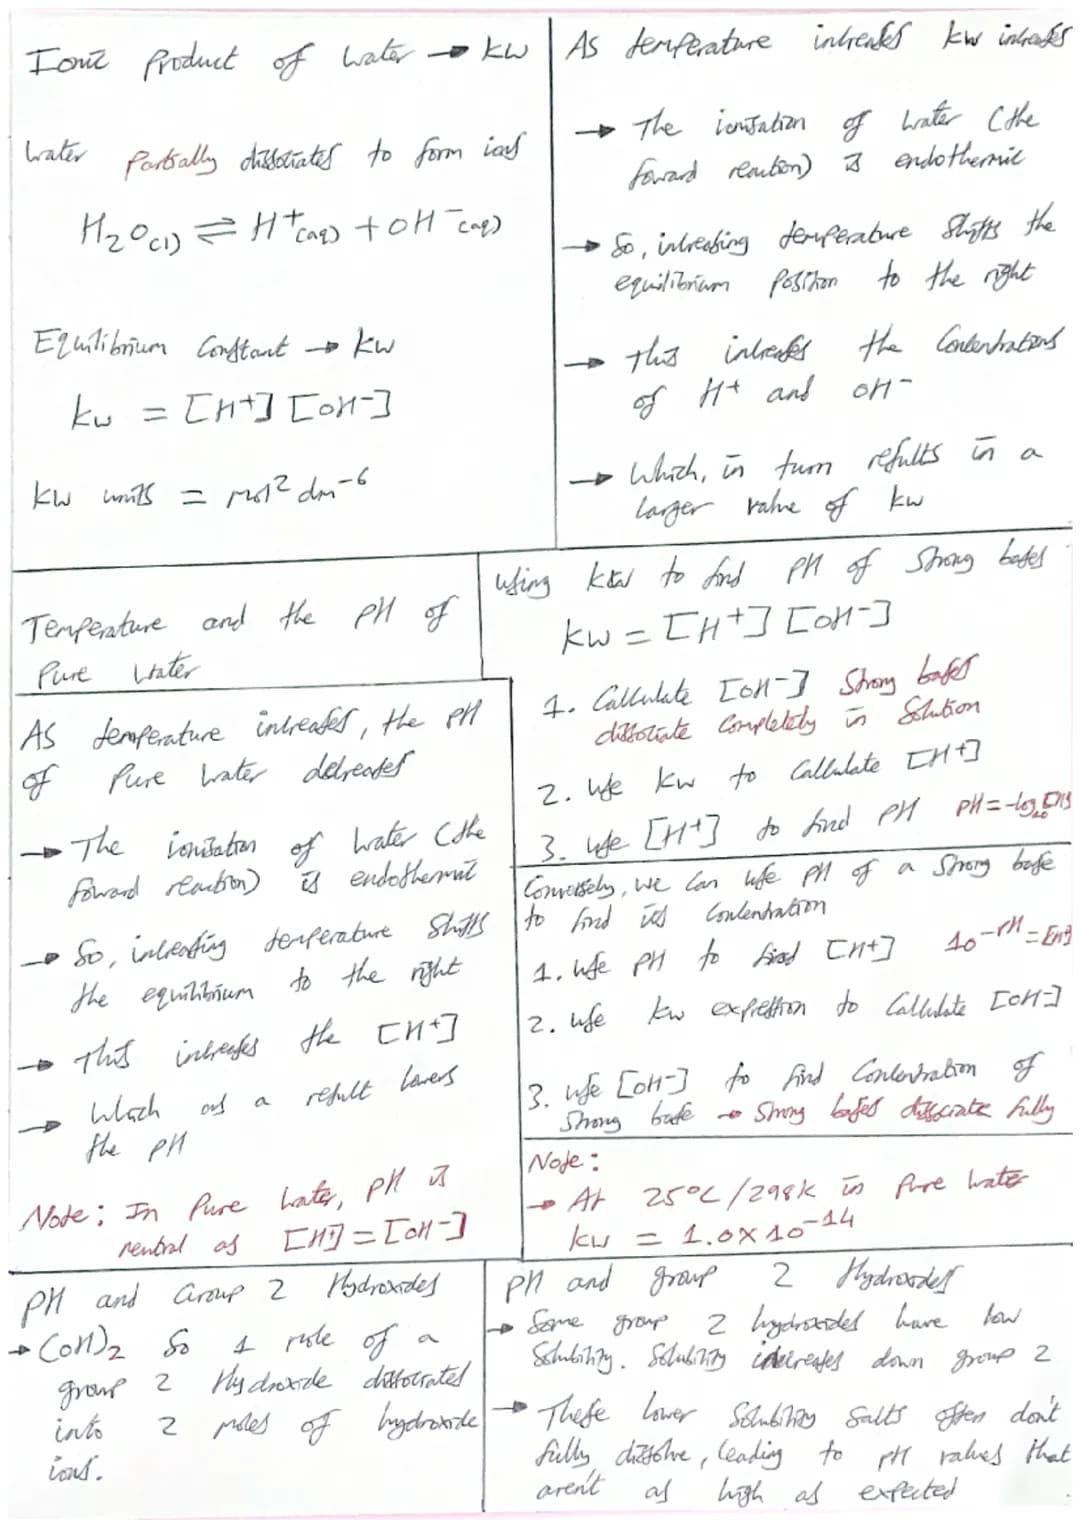 Ionic Product of Water → Kw
Water partially dissociates to form ions
H₂O(l) ⇌ H⁺(aq) + OH⁻(aq)
Equilibrium Constant → Kw
Kw = [H⁺] [OH⁻]
Kw units = mol² dm⁻⁶
As temperature increases Kw increases
→ The ionisation of water (the
forward reaction) is endothermic
→ So, increasing temperature shifts the
equilibrium position to the right
→ this increases the concentrations
of H⁺ and OH⁻
→ Which, in turn results in a
larger value of Kw
Temperature and the pH of
Pure Water
As temperature increases, the pH
of Pure water decreases
→ The ionisation of water (the
forward reaction) is endothermic
→ So, increasing temperature shifts
the equilibrium to the right
→ This increases the [H⁺]
→ Which as a result lowers
the pH
Note: In Pure water, pH is
neutral as [H⁺] = [OH⁻]
Using Kw to find pH of Strong bases
Kw = [H⁺] [OH⁻]
1. Calculate [OH⁻] Strong bases
dissociate completely in Solution
2. Use Kw to Calculate [H⁺]
3. Use [H⁺] to find pH pH = -log₁₀[H⁺]
Conversely, we can use pH of a Strong base
to find its concentration
1. Use pH to find [H⁺] 10^-pH = [H⁺]
2. Use Kw expression to Calculate [OH⁻]
3. Use [OH⁻] to find Concentration of
Strong base → Strong bases dissociate fully
Note:
→ At 25°C/298K in Pure water
Kw = 1.0×10⁻¹⁴
pH and Group 2 Hydroxides
→ (OH)₂ So 1 mole of a
group 2 Hydroxide dissociated
into 2 moles of hydroxide
ions.
pH and group 2 Hydroxides
→ Some group 2 hydroxides have low
Solubility. Solubility increases down group 2
→ These lower Solubility Salts often don't
fully dissolve, leading to pH values that
aren't as high as expected